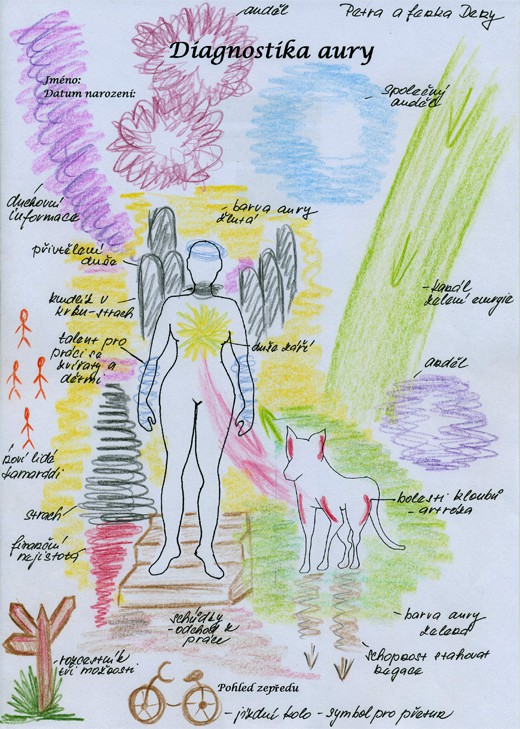 anděl
Petra a fenka Dezy
Diagnostika aury
Jméno:
Datum narození:
společný
anděl
duchovní
informace
barva aury
žlutá
přivtělení
duše
knedlík v
krku-strach
kanál
zelení energie
talent pro
práci se
zvířaty a
dětmi
duše září
anděl
noví lidé
kamarádi
bolesti kloubů
- artróza
strach
finanční
nejistota
schůdky
-odchod z
práce
barva aury
zelená
schopnost stahovat
bugace
rozcestník
tři možnosti
Pohled zepředu
- jízdní kolo - symbol pro